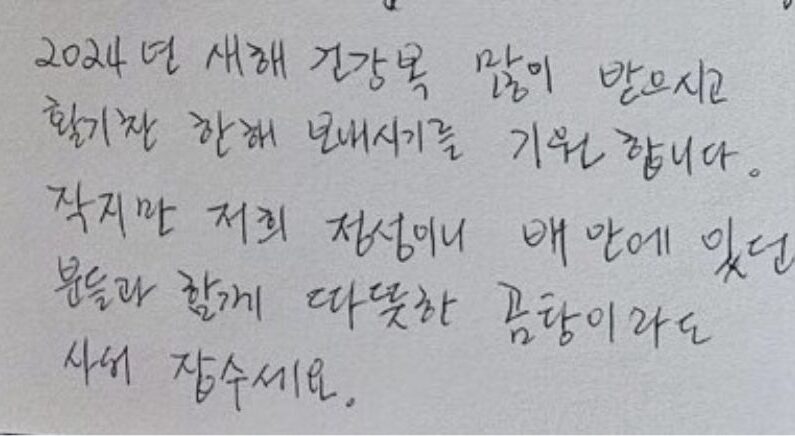 2024년 새해 건강복 많이 받으시고
활기찬 한해 보내시기를 기원합니다.
작지만 저희 정성이니 배 안에 있던
분들과 함께 따뜻한 곰탕이라도
사서 잡수세요.